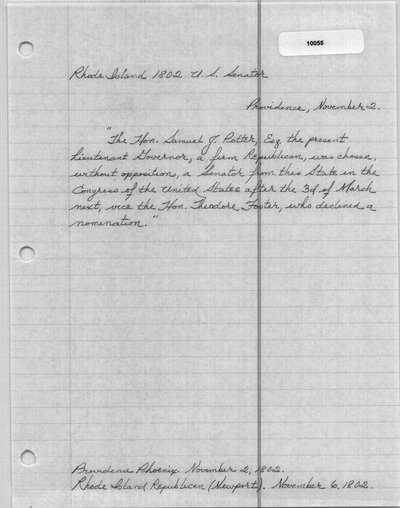 10055
Rhode Island 1802 U.S. Senator
Providence, November 2.
"The Hon. Samuel J. Potter, Esq. the present
Lieutenant Governor, a firm Republican, was chosen,
without opposition, a Senator from this State in the
Congress of the United States after the 3d of March
next, vice the Hon. Theodore Foster, who declined a
nomination."
Providence Phoenix. November 2, 1802.
Rhode Island Republican (Newport). November 6, 1802.